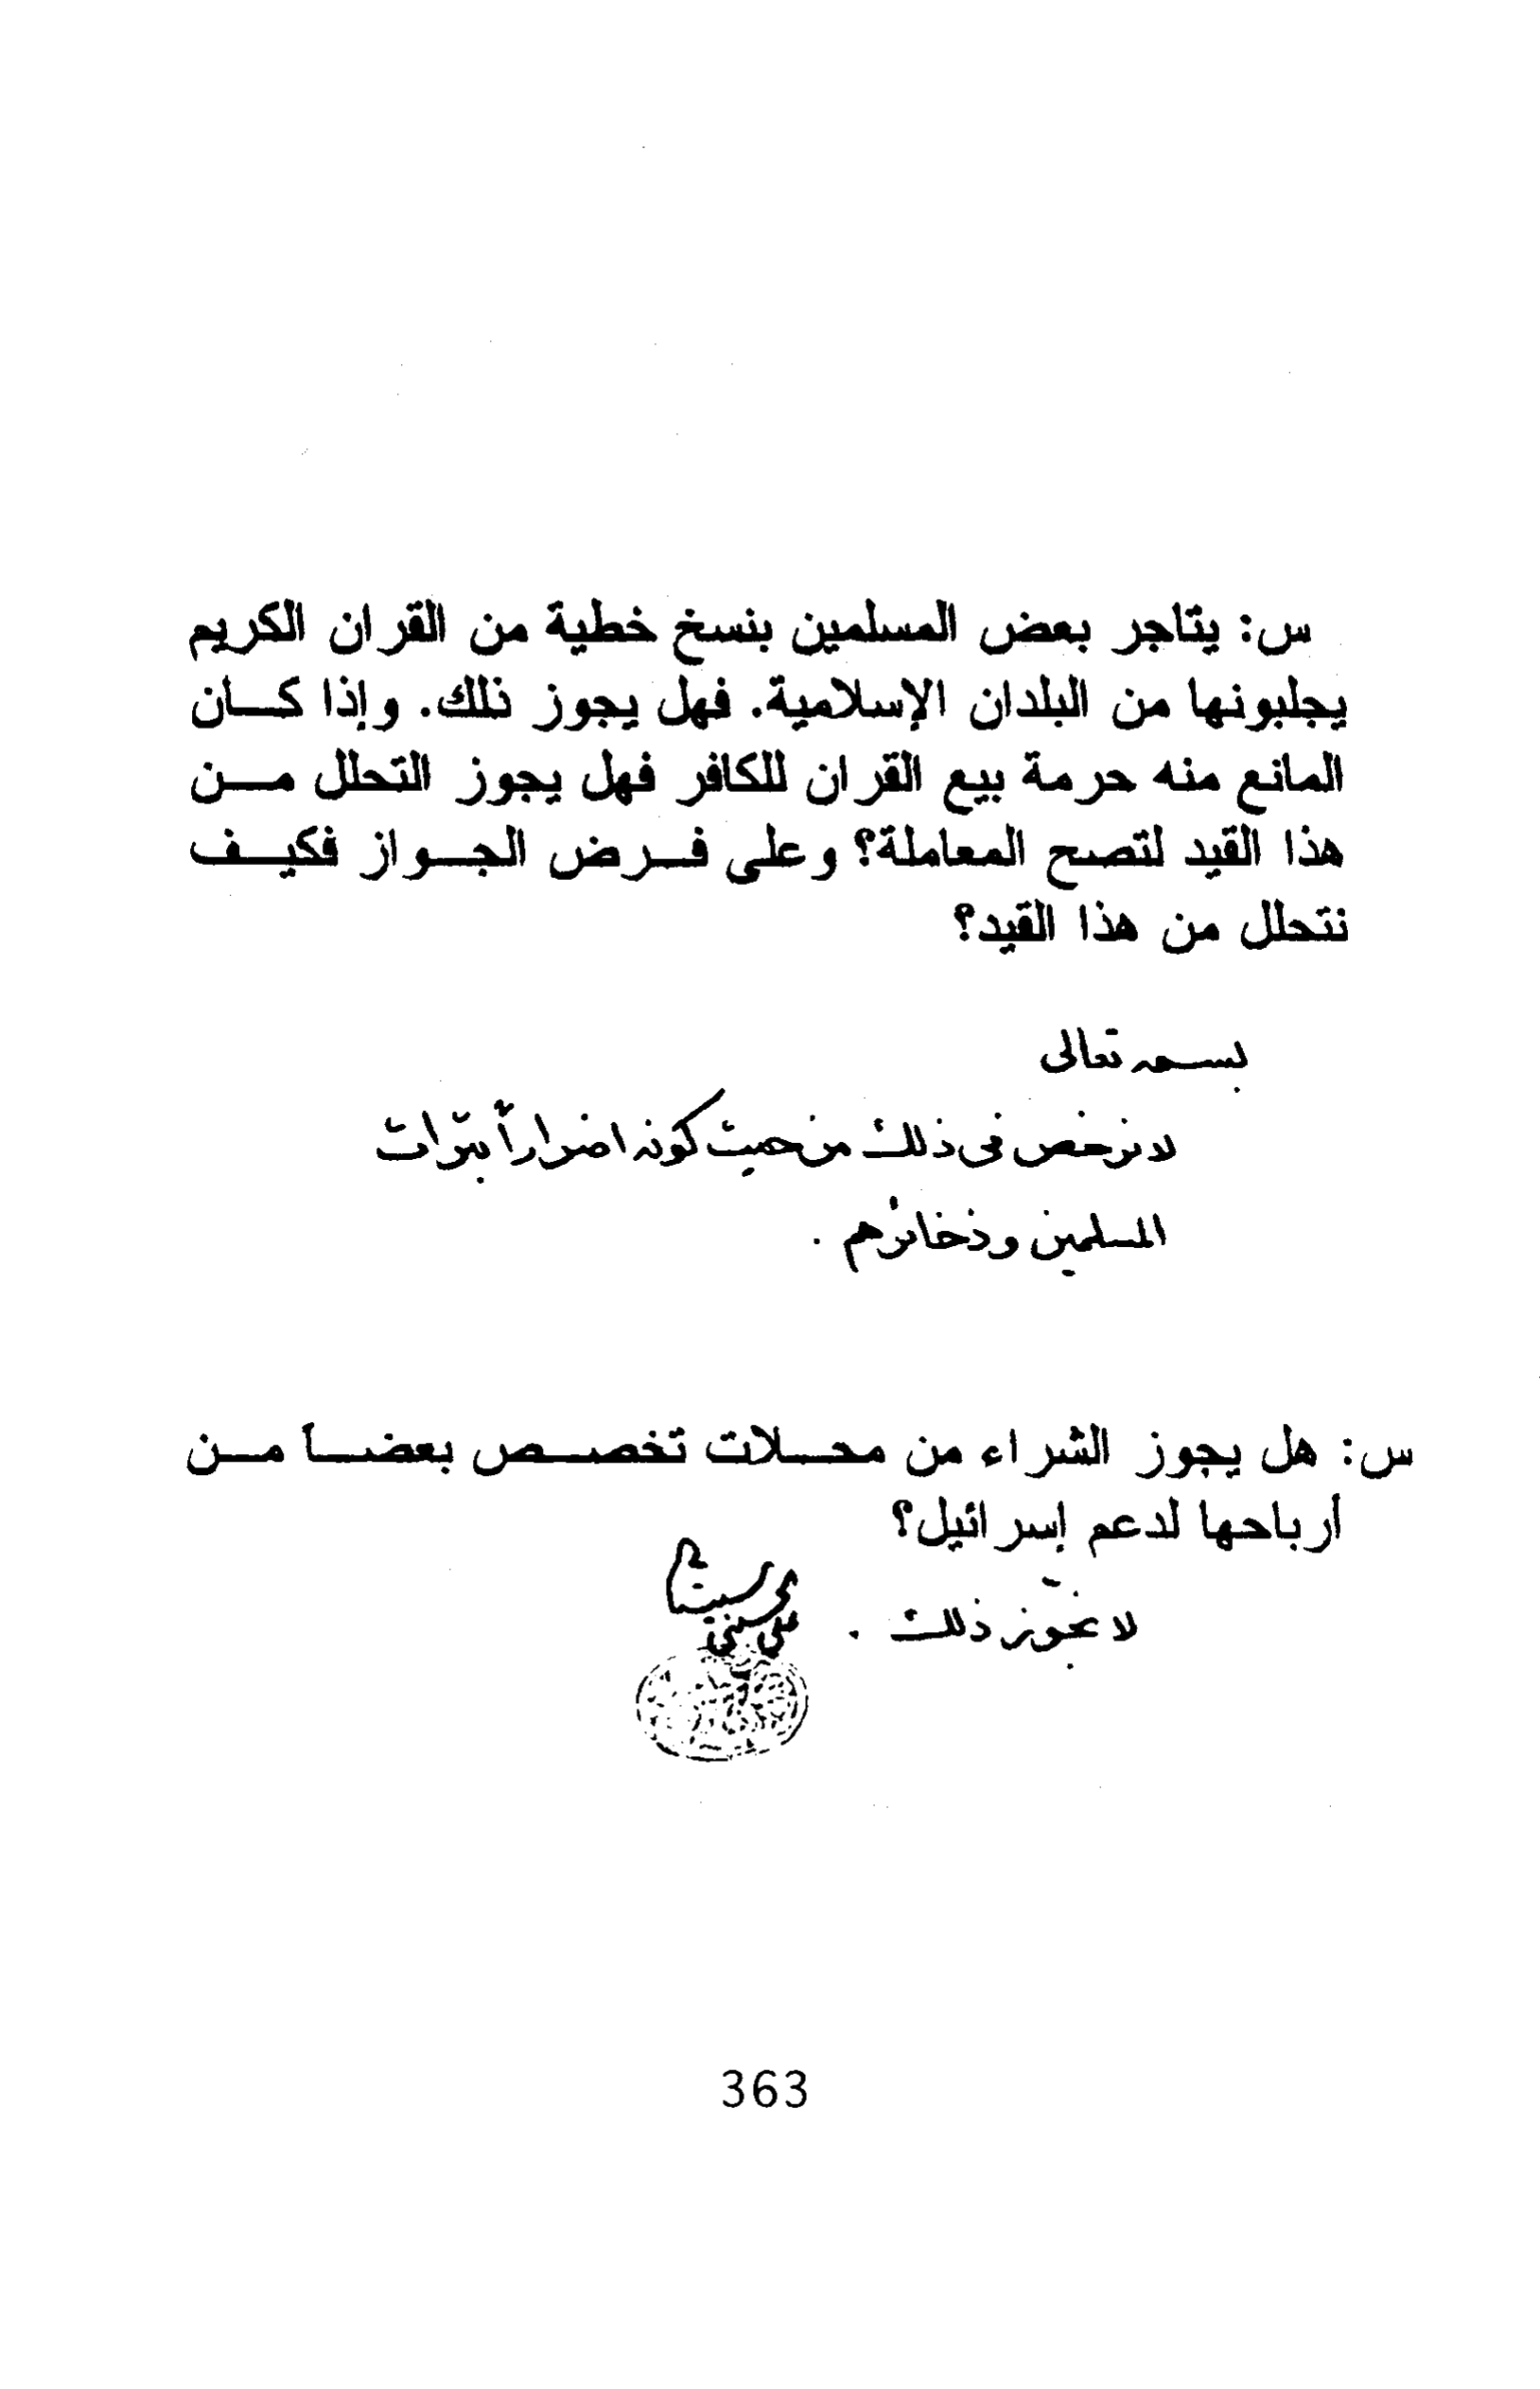 س: يتاجر بعض المسلمين بنسخ خطية من القران الكريم
يجلبونها من البلدان الإسلامية. فهل يجوز ذلك. وإذا كان
المانع منه حرمة بيع القران للكافر فهل يجوز التحلل من
هذا القيد لتصح المعاملة؟ وعلى فرض الجواز فكيف
نتحلل من هذا القيد؟
بسمه تعالى
لا نرخص في ذلك من حيث كونه اضراراً بتراث
المسلمين وذخائرهم .
س: هل يجوز الشراء من محلات تخصص بعضاً من
أرباحها لدعم إسرائيل؟
لا نجوّز ذلك .
363